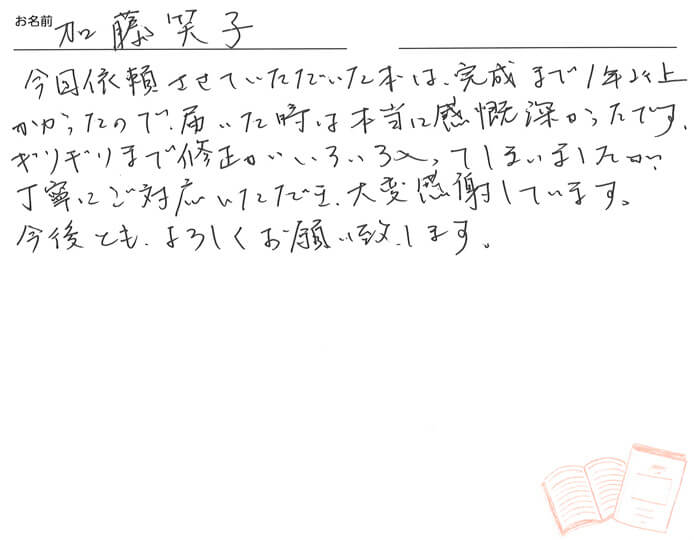 お名前 加藤笑子
今回依頼させていただいた本は、完成まで1年以上
かかったので、届いた時は本当に感慨深かったです。
ギリギリまで修正がいろいろ入ってしまいましたが、
丁寧にご対応いただき、大変感謝しています。
今後とも、よろしくお願い致します。